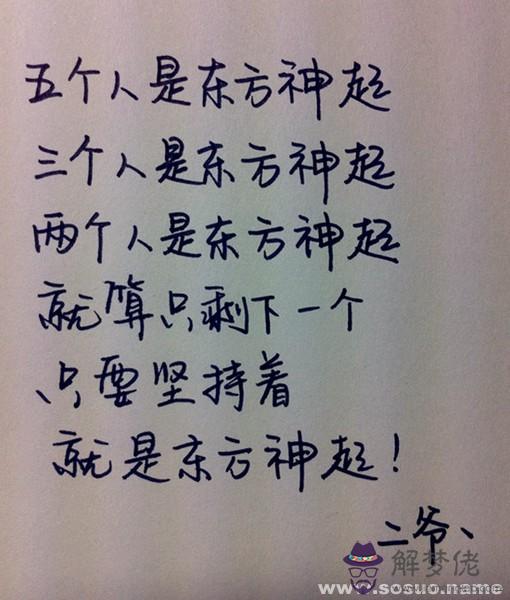 五个人是东方神起
三个人是东方神起
两个人是东方神起
就算只剩下一个
只要坚持着
就是东方神起！
二爷、
解梦佬
www.sosuo.name